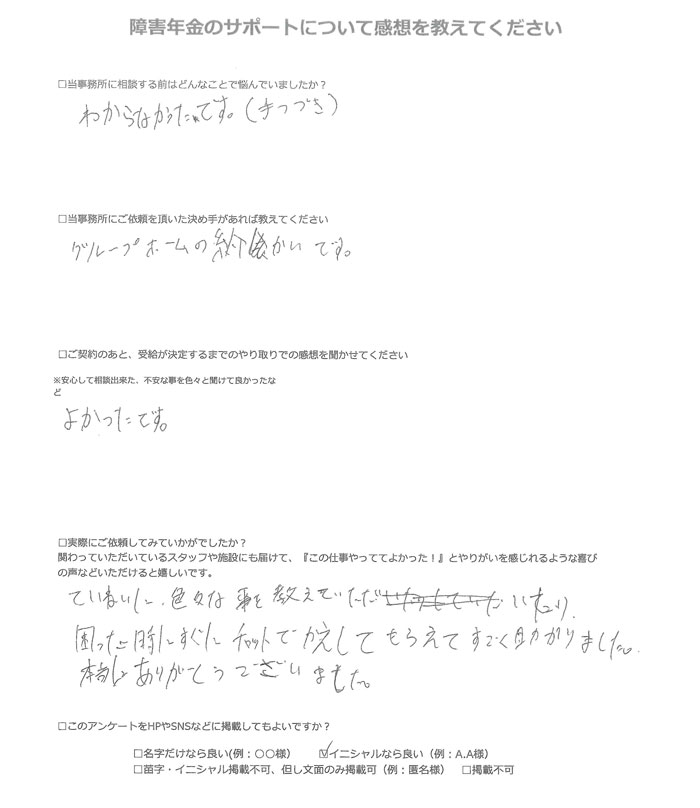 障害年金のサポートについて感想を教えてください
□当事務所に相談する前はどんなことで悩んでいましたか？
わからなかったです。(手つづき)
□当事務所にご依頼を頂いた決め手があれば教えてください
グループホームの紹かいです。
□ご契約のあと、受給が決定するまでのやり取りでの感想を聞かせてください
※安心して相談出来た、不安な事を色々と聞けて良かったな
ど
よかったです。
□実際にご依頼してみていかがでしたか？
関わっていただいているスタッフや施設にも届けて、『この仕事やっててよかった！』とやりがいを感じれるような喜び
の声などいただけると嬉しいです。
ていねいに、色々な事を教えていただいたり、
困った時にすぐにチャットでかえしてもらえてすごく助かりました。
本当にありがとうございました。
□このアンケートをHPやSNSなどに掲載してもよいですか？
□名字だけなら良い(例：〇〇様） ☑イニシャルなら良い（例：A.A様）
□苗字・イニシャル掲載不可、但し文面のみ掲載可（例：匿名様） □掲載不可